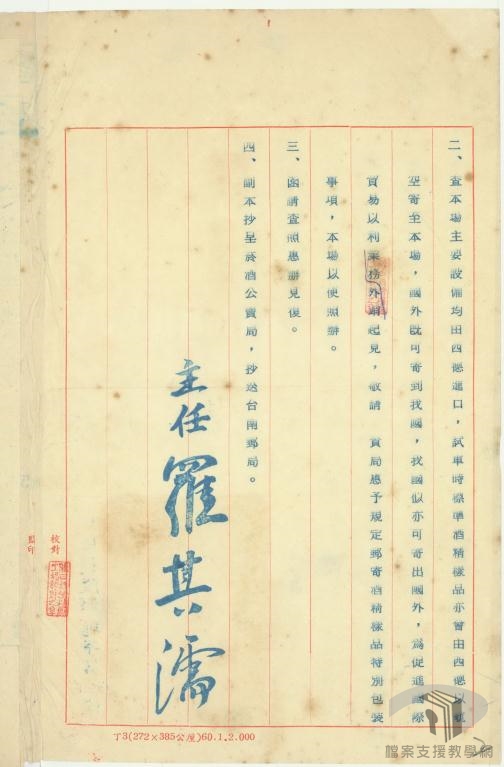 二、查本場主要設備均由西德進口，試車時標準酒精樣品亦曾由西德以航
空寄至本場，國外既可寄到我國，我國似亦可寄出國外，為促進國際
貿易以利業務外銷起見，敬請　貴局惠予規定郵寄酒精樣品特別包裝
事項，本場以便照辦。
三、函請查照惠辦見復。
四、副本抄呈菸酒公賣局，抄送台南郵局。
主任羅其濡
校對
監印
丁3(272×385公厘)60.1.2.000
檔案支援教學網